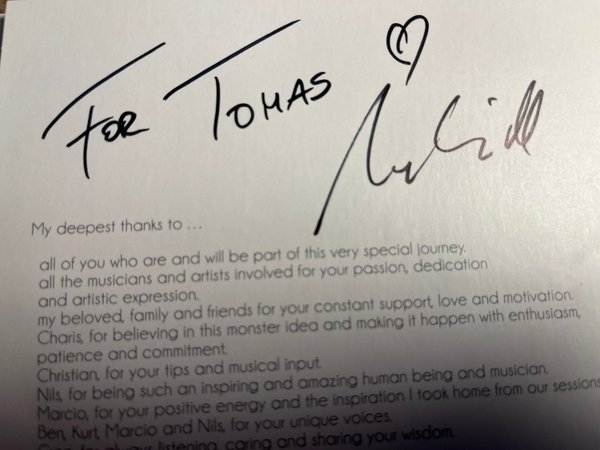 FOR TOMAS
My deepest thanks to ...
all of you who are and will be part of this very special journey.
all the musicians and artists involved for your passion, dedication
and artistic expression.
my beloved, family and friends for your constant support, love and motivation.
Charis, for believing in this monster idea and making it happen with enthusiasm,
patience and commitment.
Christian, for your tips and musical input.
Nils, for being such an inspiring and amazing human being and musician.
Marcio, for your positive energy and the inspiration I took home from our sessions
Ben, Kurt, Marcio and Nils, for your unique voices.
for always listening, caring and sharing your wisdom.